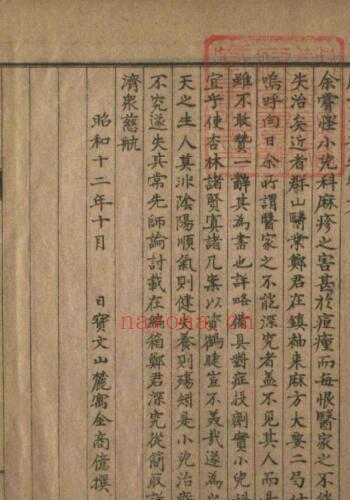 余嘗怪小兒科麻疹之害甚於痘瘇而每恨醫家之不能
失治矣近者群山醫業鄭君在鎮袖来麻方大要二号
嗚呼向日余所謂醫家之不能深究者盖不見其人而
雖不敢贊一辭其為書也詳略備具對症投劑實小兒科
宜乎使杏林諸賢寘諸几案以資鶴睫豈不美哉遂為
天之生人莫非陰陽順氣則健失養則殤矧是小兒治
不究遂失其常先師論討載在編箱鄭君深究從簡取
濟衆慈航
昭和十二年十月
日寶文山麓寓金商億撰
naronia.cn